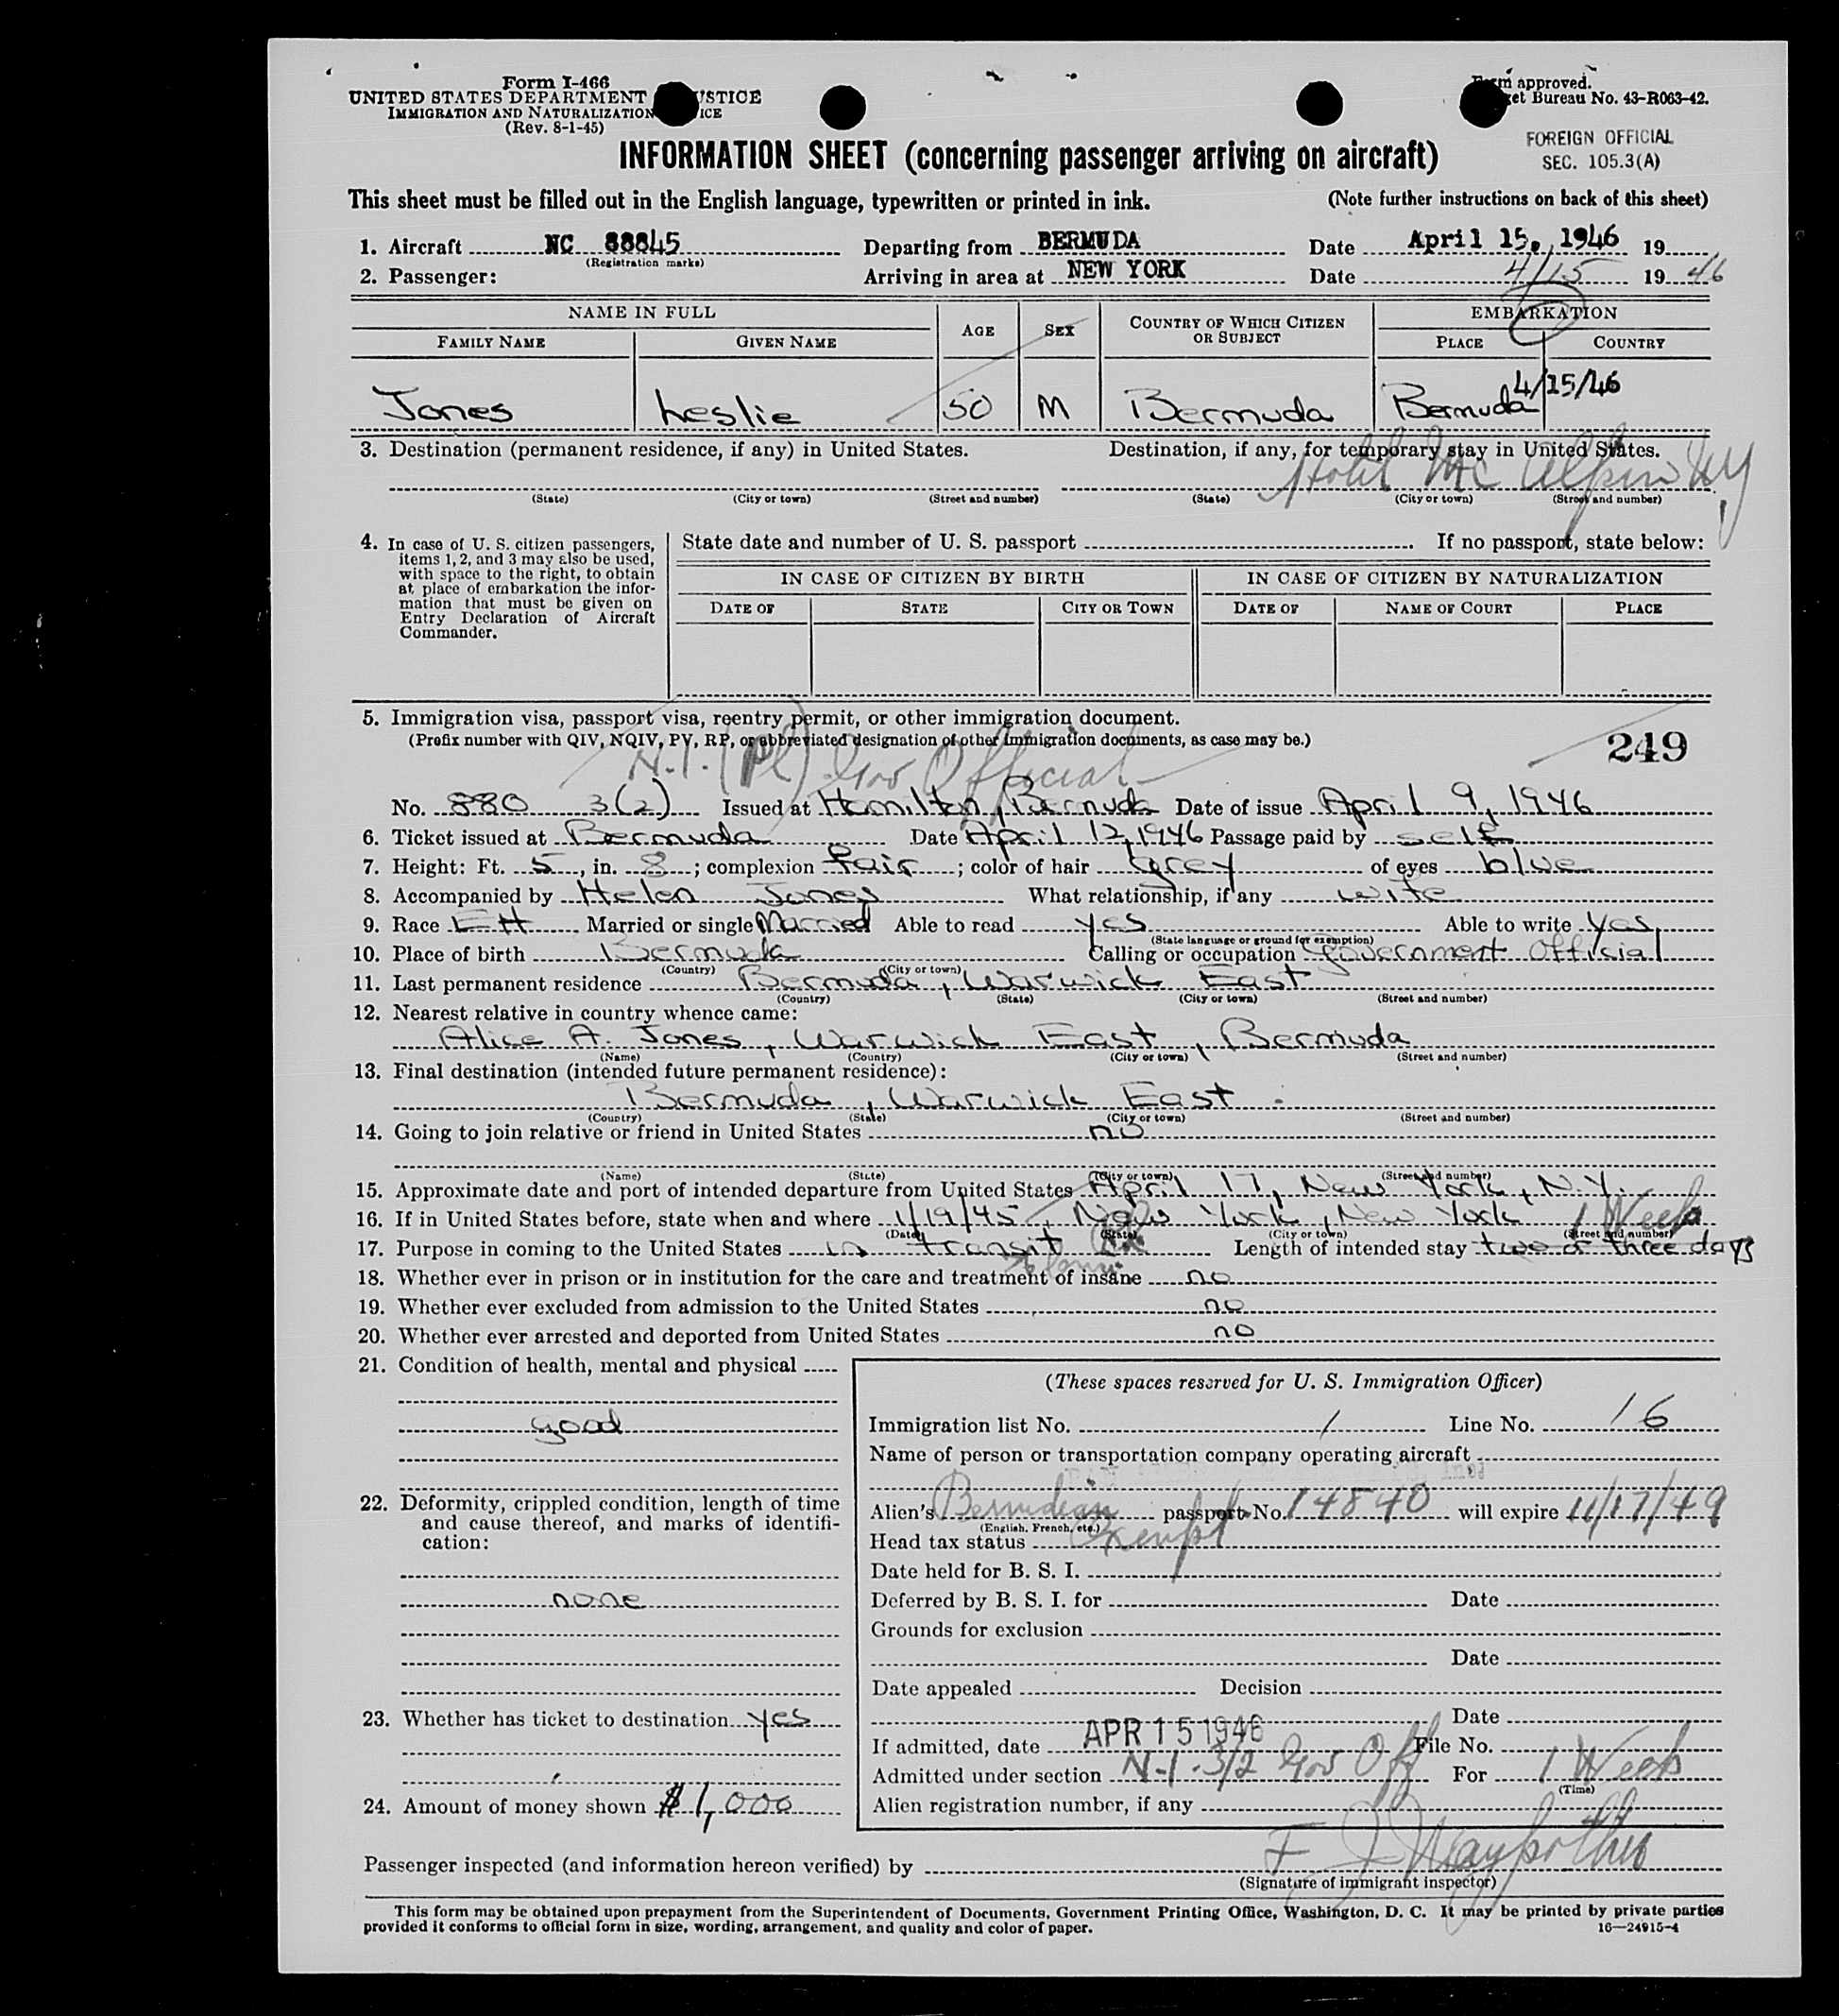 Form I-466
UNITED STATES DEPARTMENT USTICE
IMMIGRATION AND NATURALIZATION ICE
(Rev. 8-1-45)
m approved.
et Bureau No. 43-R063-42.
FOREIGN OFFICIAL
SEC. 105.3(A)
INFORMATION SHEET (concerning passenger arriving on aircraft)
This sheet must be filled out in the English language, typewritten or printed in ink. (Note further instructions on back of this sheet)
1. Aircraft NC 88845 Departing from BERMUDA Date April 15, 1946 19
(Registration marks)
2. Passenger: Arriving in area at NEW YORK Date 4/15 19 46
NAME IN FULL AGE SEX COUNTRY OF WHICH CITIZEN OR SUBJECT EMBARKATION
FAMILY NAME GIVEN NAME PLACE COUNTRY
4/15/46
Jones Leslie 50 M Bermuda Bermuda
3. Destination (permanent residence, if any) in United States. Destination, if any, for temporary stay in United States.
Hotel McAlpin NY
(State) (City or town) (Street and number) (State) (City or town) (Street and number)
4. In case of U. S. citizen passengers, items 1, 2, and 3 may also be used, with space to the right, to obtain at place of embarkation the information that must be given on Entry Declaration of Aircraft Commander.
State date and number of U. S. passport . If no passport, state below:
IN CASE OF CITIZEN BY BIRTH IN CASE OF CITIZEN BY NATURALIZATION
DATE OF STATE CITY OR TOWN DATE OF NAME OF COURT PLACE
5. Immigration visa, passport visa, reentry permit, or other immigration document.
(Prefix number with QIV, NQIV, PV, RP, or abbreviated designation of other immigration documents, as case may be.)
249
N.I. (Pl) Gov Official
No. 880 3(2) Issued at Hamilton, Bermuda Date of issue April 9, 1946
6. Ticket issued at Bermuda Date April 12, 1946 Passage paid by self
7. Height: Ft. 5, in. 8; complexion fair; color of hair Grey of eyes blue
8. Accompanied by Helen Jones What relationship, if any wife
9. Race EH Married or single Married Able to read yes Able to write yes
(State language or ground for exemption)
10. Place of birth Bermuda Calling or occupation Government Official
(Country) (City or town)
11. Last permanent residence Bermuda, Warwick East
(Country) (State) (City or town) (Street and number)
12. Nearest relative in country whence came:
Alice A. Jones, Warwick East, Bermuda
(Name) (Country) (City or town) (Street and number)
13. Final destination (intended future permanent residence):
Bermuda, Warwick East.
(Country) (State) (City or town) (Street and number)
14. Going to join relative or friend in United States no
(Name) (State) (City or town) (Street and number)
15. Approximate date and port of intended departure from United States April 17, New York, N.Y.
16. If in United States before, state when and where 1/19/45, New York, New York 1 Week
(Date) (State) (City or town) (Street and number)
17. Purpose in coming to the United States in transit Length of intended stay two or three days
18. Whether ever in prison or in institution for the care and treatment of insane no
19. Whether ever excluded from admission to the United States no
20. Whether ever arrested and deported from United States no
21. Condition of health, mental and physical
good
22. Deformity, crippled condition, length of time and cause thereof, and marks of identification:
none
23. Whether has ticket to destination yes
24. Amount of money shown $1,000
(These spaces reserved for U. S. Immigration Officer)
Immigration list No. 1 Line No. 16
Name of person or transportation company operating aircraft
Alien's Bermudian passport No. 14840 will expire 11/17/49
(English, French, etc.)
Head tax status Exempt
Date held for B. S. I.
Deferred by B. S. I. for Date
Grounds for exclusion
Date
Date appealed Decision
Date
If admitted, date APR 15 1946 File No.
Admitted under section N-I-3/2 Gov Off For 1 Week
(Time)
Alien registration number, if any
Passenger inspected (and information hereon verified) by F J
(Signature of immigrant inspector)
This form may be obtained upon prepayment from the Superintendent of Documents, Government Printing Office, Washington, D. C. It may be printed by private parties
provided it conforms to official form in size, wording, arrangement, and quality and color of paper. 16—24915-4